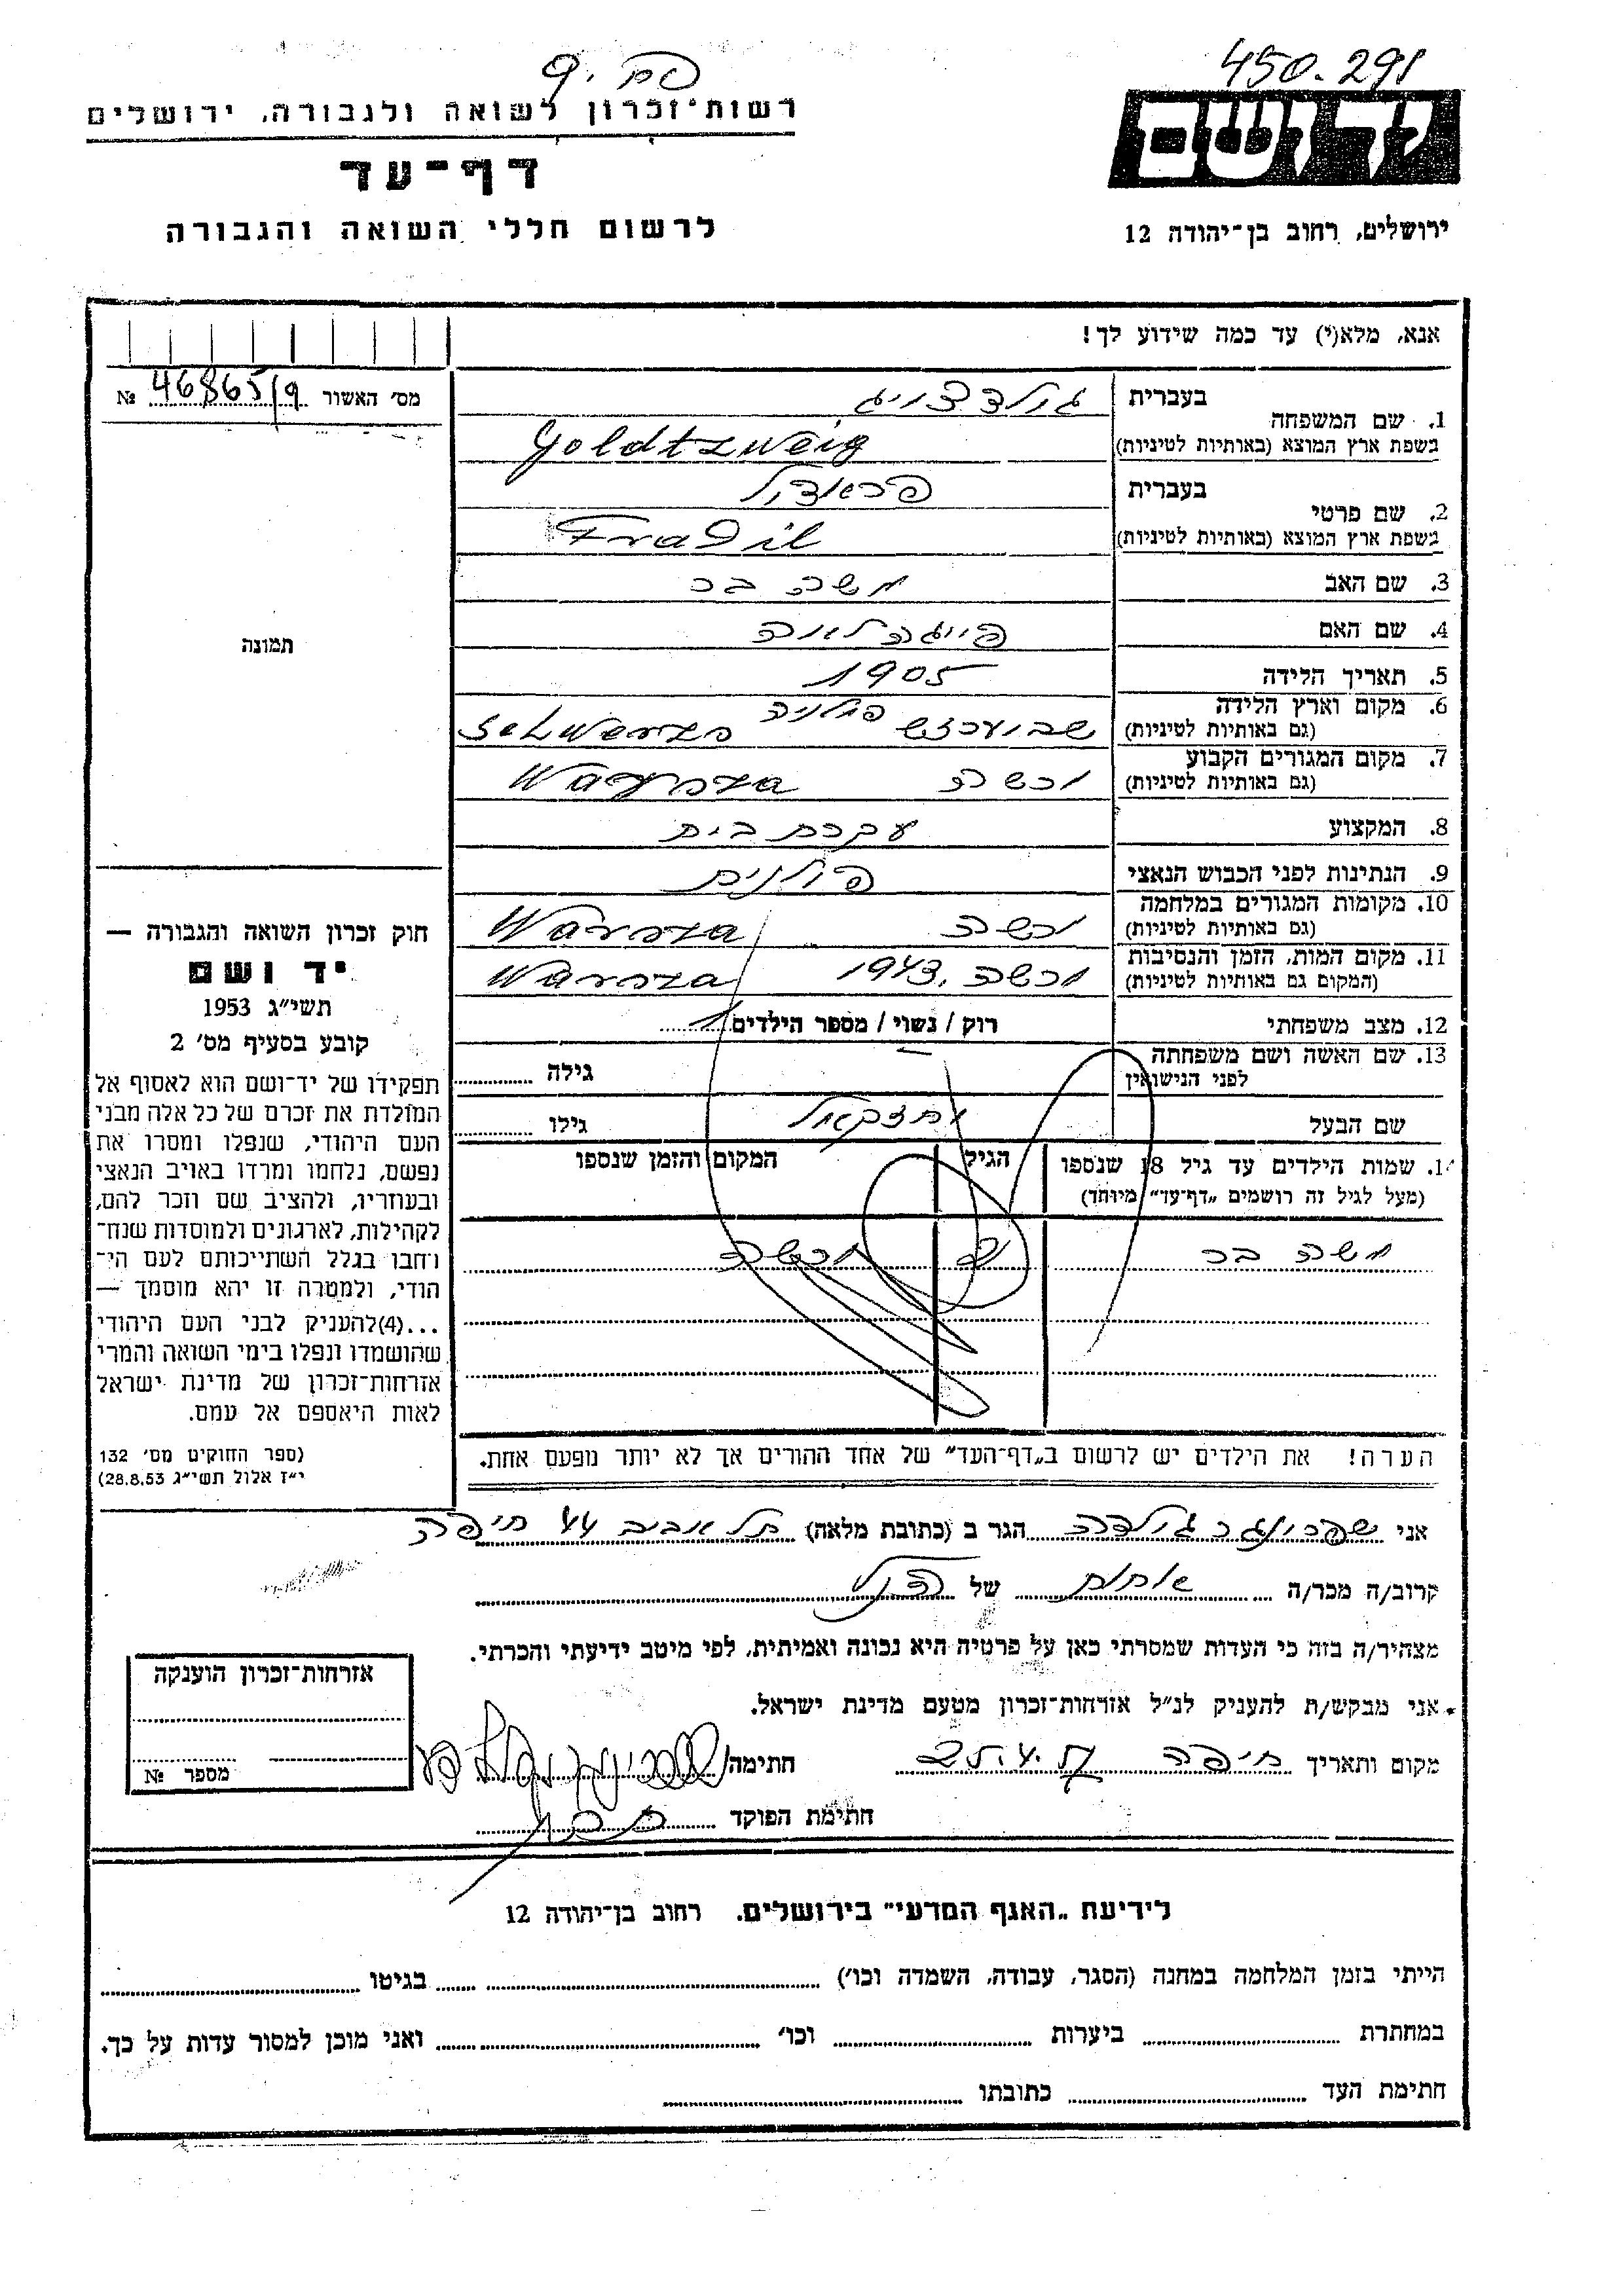 450.291
רשות־זכרון לשואה ולגבורה, ירושלים
דף־עד
לרשום חללי השואה והגבורה
יד ושם
ירושלים, רחוב בן־יהודה 12
אנא, מלא(י) עד כמה שידוע לך!
מס' האשור 46865/9 №
תמונה
1. שם המשפחה
בעברית גולדצויג
בשפת ארץ המוצא (באותיות לטיניות) Goldtzweig
2. שם פרטי
בעברית פראדיל
בשפת ארץ המוצא (באותיות לטיניות) Fradil
3. שם האב משה בר
4. שם האם פייגה לאה
5. תאריך הלידה 1905
6. מקום וארץ הלידה פולניה
(גם באותיות לטיניות)
7. מקום המגורים הקבוע ורשה
(גם באותיות לטיניות) Warsza
8. המקצוע עקרת בית
9. הנתינות לפני הכבוש הנאצי פולנית
10. מקומות המגורים במלחמה ורשה
(גם באותיות לטיניות) Warsza
11. מקום המות, הזמן והנסיבות ורשה, 1943
(המקום גם באותיות לטיניות) Warsza
12. מצב משפחתי רוק / נשוי / מספר הילדים 1
13. שם האשה ושם משפחתה
לפני הנישואין גילה
שם הבעל יחזקאל גילו
14. שמות הילדים עד גיל 18 שנספו הגיל המקום והזמן שנספו
(מעל לגיל זה רושמים „דף־עד" מיוחד)
משה בר ורשה
הערה! את הילדים יש לרשום ב„דף־העד" של אחד ההורים אך לא יותר מפעם אחת.
חוק זכרון השואה והגבורה —
יד ושם
תשי"ג 1953
קובע בסעיף מס' 2
תפקידו של יד־ושם הוא לאסוף אל
המולדת את זכרם של כל אלה מבני
העם היהודי, שנפלו ומסרו את
נפשם, נלחמו ומרדו באויב הנאצי
ובעוזריו, ולהציב שם וזכר להם,
לקהילות, לארגונים ולמוסדות שנח־
רבו בגלל השתייכותם לעם הי־
הודי, ולמטרה זו יהא מוסמך —
...(4)להעניק לבני העם היהודי
שהושמדו ונפלו בימי השואה והמרי
אזרחות־זכרון של מדינת ישראל
לאות היאספם אל עמם.
(ספר החוקים מס' 132
י"ז אלול תשי"ג 28.8.53)
אני שפרונגר גולדה הגר ב (כתובת מלאה) תל אביב 44 חיפה
קרוב/ה מכר/ה אחות של הנ"ל
מצהיר/ה בזה כי העדות שמסרתי כאן על פרטיה היא נכונה ואמיתית, לפי מיטב ידיעתי והכרתי.
אני מבקש/ת להעניק לנ"ל אזרחות־זכרון מטעם מדינת ישראל.
מקום ותאריך חיפה חתימה
חתימת הפוקד
אזרחות־זכרון הוענקה
מספר №
לידיעת „האגף המדעי" בירושלים. רחוב בן־יהודה 12
הייתי בזמן המלחמה במחנה (הסגר, עבודה, השמדה וכו') בגיטו
במחתרת ביערות וכו' ואני מוכן למסור עדות על כך.
חתימת העד כתובתו